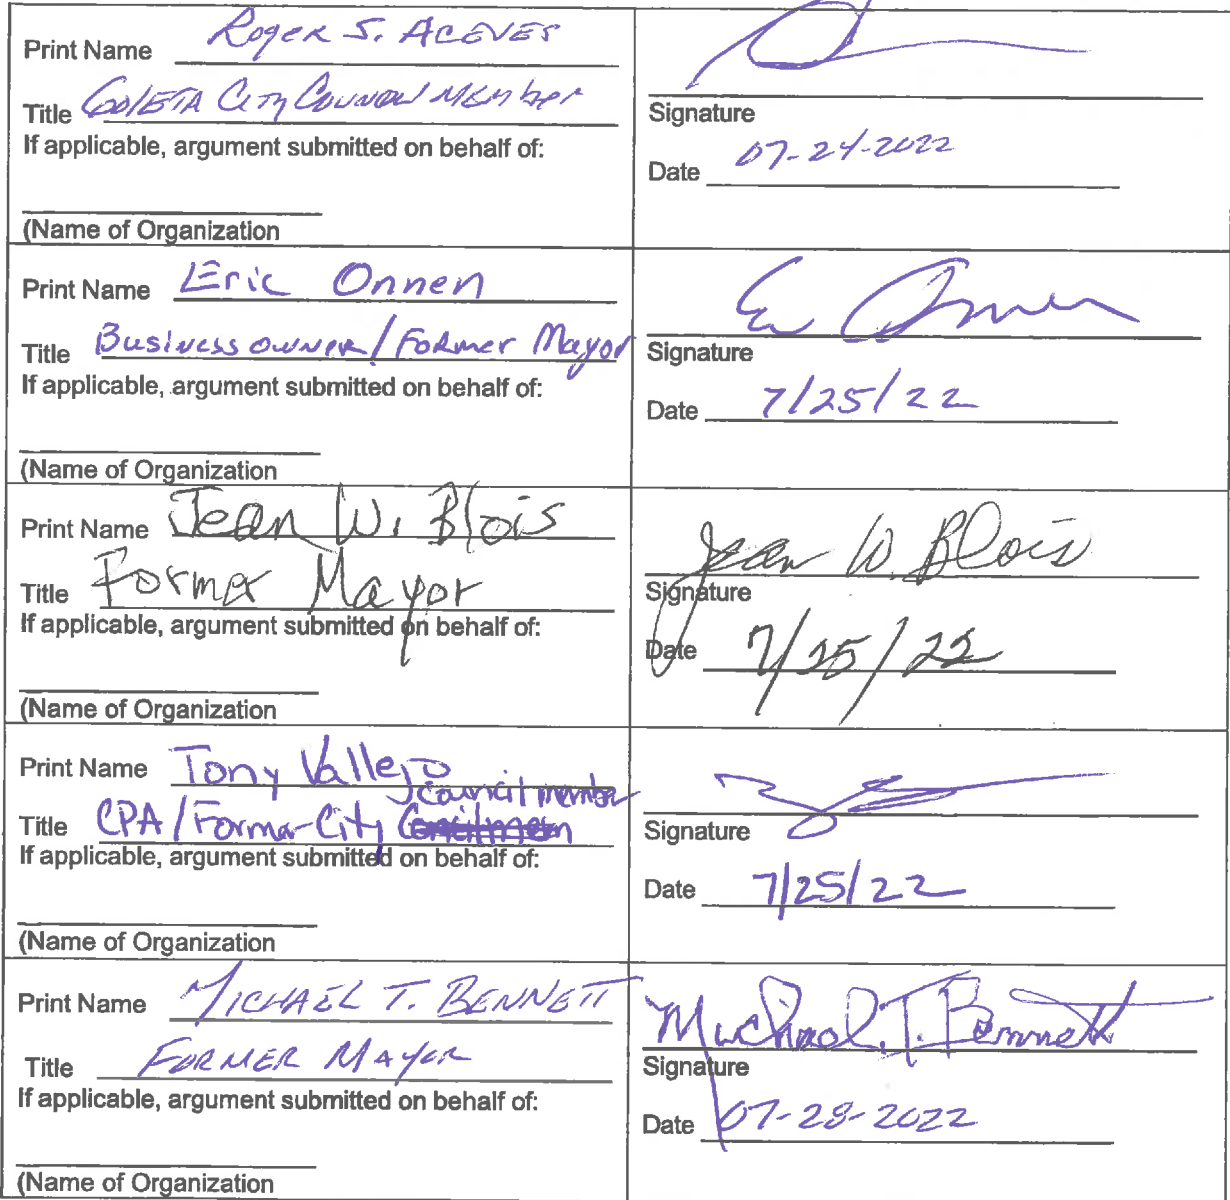 Print Name Roger S. ACEVES
Title GOLETA City Council Member
If applicable, argument submitted on behalf of:
(Name of Organization
Signature
Date 07-24-2022
Print Name Eric Onnen
Title Business owner/Former Mayor
If applicable, argument submitted on behalf of:
(Name of Organization
E Onnen
Signature
Date 7/25/22
Print Name Jean W. Blois
Title Former Mayor
If applicable, argument submitted on behalf of:
(Name of Organization
Jean W. Blois
Signature
Date 7/25/22
Print Name Tony Vallejo
councilmember
Title CPA/Former City
If applicable, argument submitted on behalf of:
(Name of Organization
Signature
Date 7/25/22
Print Name MICHAEL T. BENNETT
Title FORMER MAYOR
If applicable, argument submitted on behalf of:
(Name of Organization
Michael T. Bennett
Signature
Date 07-28-2022